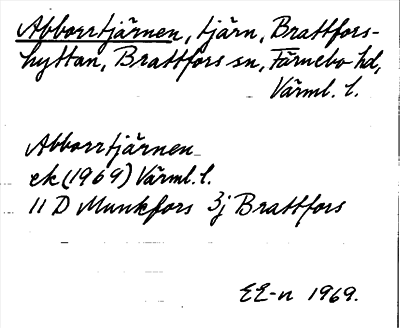 Abborrtjärnen, tjärn, Brattfors-
hyttan, Brattfors sn, Färnebo hd,
Värml. l.
Abborrtjärnen
ek (1969) Värml. l.
11 D Munkfors 3j Brattfors
EE-n 1969.